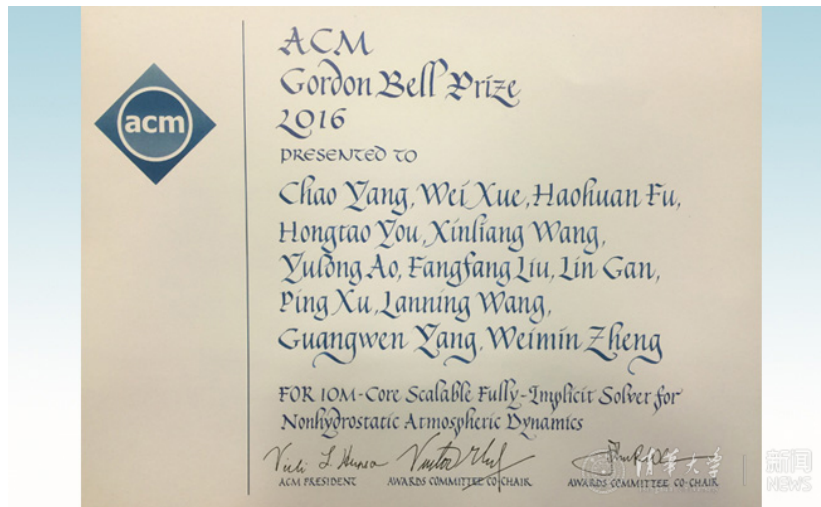 acm
ACM
Gordon Bell Prize
2016
PRESENTED TO
Chao Yang, Wei Xue, Haohuan Fu,
Hongtao You, Xinliang Wang,
Yulong Ao, Fangfang Liu, Lin Gan,
Ping Xu, Lanning Wang,
Guangwen Yang, Weimin Zheng
FOR 10M-Core Scalable Fully-Implicit Solver for
Nonhydrostatic Atmospheric Dynamics
ACM PRESIDENT
AWARDS COMMITTEE CO-CHAIR
AWARDS COMMITTEE CO-CHAIR
清华大学
新闻
NEWS